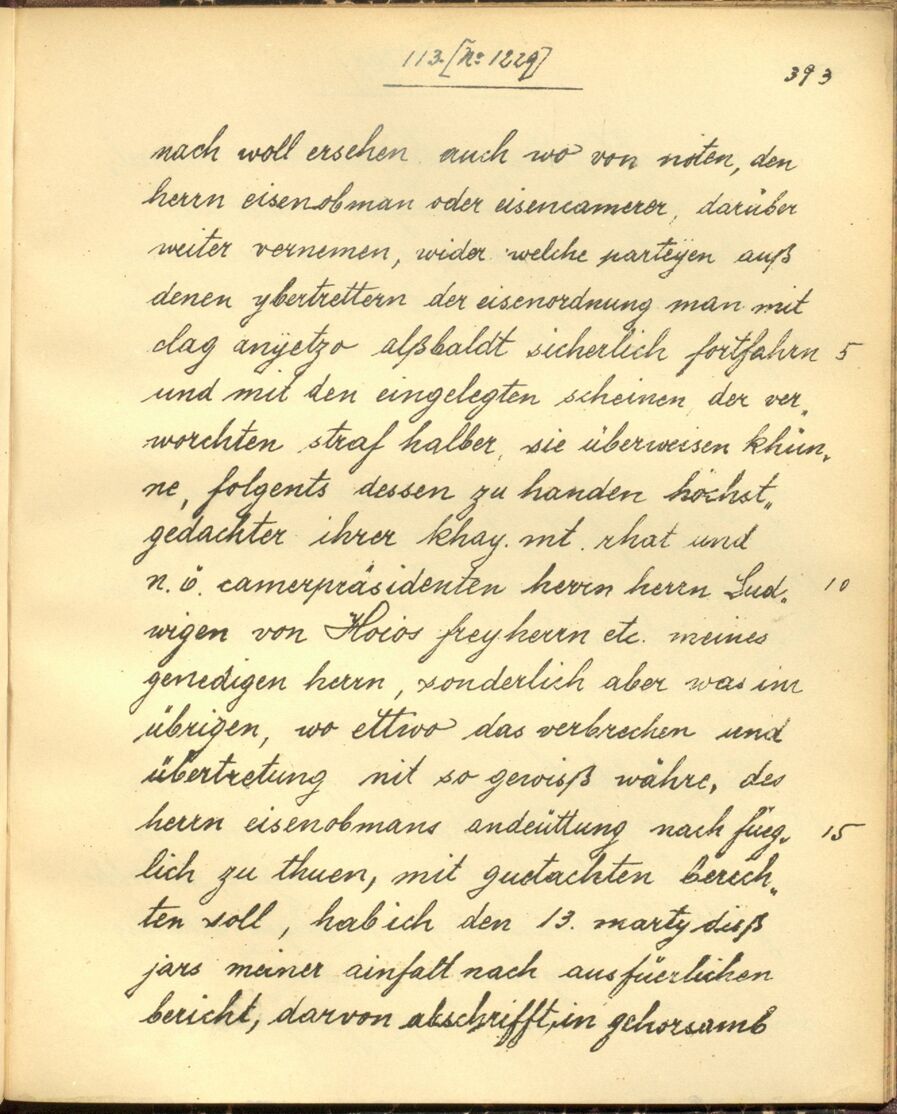 113. [No 1229]
393
nach woll ersehen auch wo von nöten, den
herrn eisenobman oder eisencamerer, darüber
weiter vernemen, wider welche parteyen auß
denen ybertrettern der eisenordnung man mit
clag anyetzo alßbaldt sicherlich fortfahrn 5
und mit den eingelegten scheinen der ver„
worchten straf halber, sie überweisen khün„
ne, folgents dessen zu handen höchst„
gedachter ihrer khay. mt. rhat und
n. ö. camerpräsidenten herrn herrn Lud„ 10
wigen von Hoios freyherrn etc. meines
genedigen herrn, sonderlich aber was im
übrigen, wo ettwo das verbrechen und
übertretung nit so gewiß währe, des
herrn eisenobmans andeüttung nach füeg„ 15
lich zu thuen, mit guetachten berich„
ten soll, hab ich den 13. marty diß
jars meiner ainfalt nach ausfüerlichen
bericht, darvon abschrifft, in gehorsamb